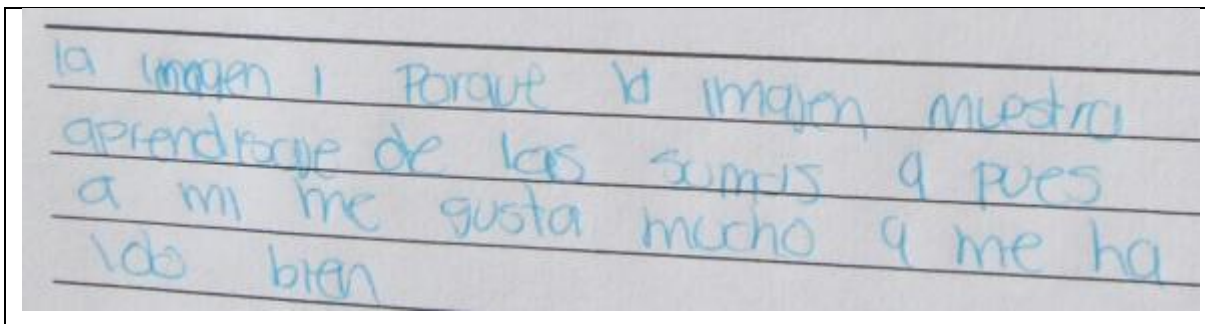 la imagen 1 Porque la imajen muestra
aprendisaje de las sumas y pues
a mi me gusta mucho y me ha
ido bien